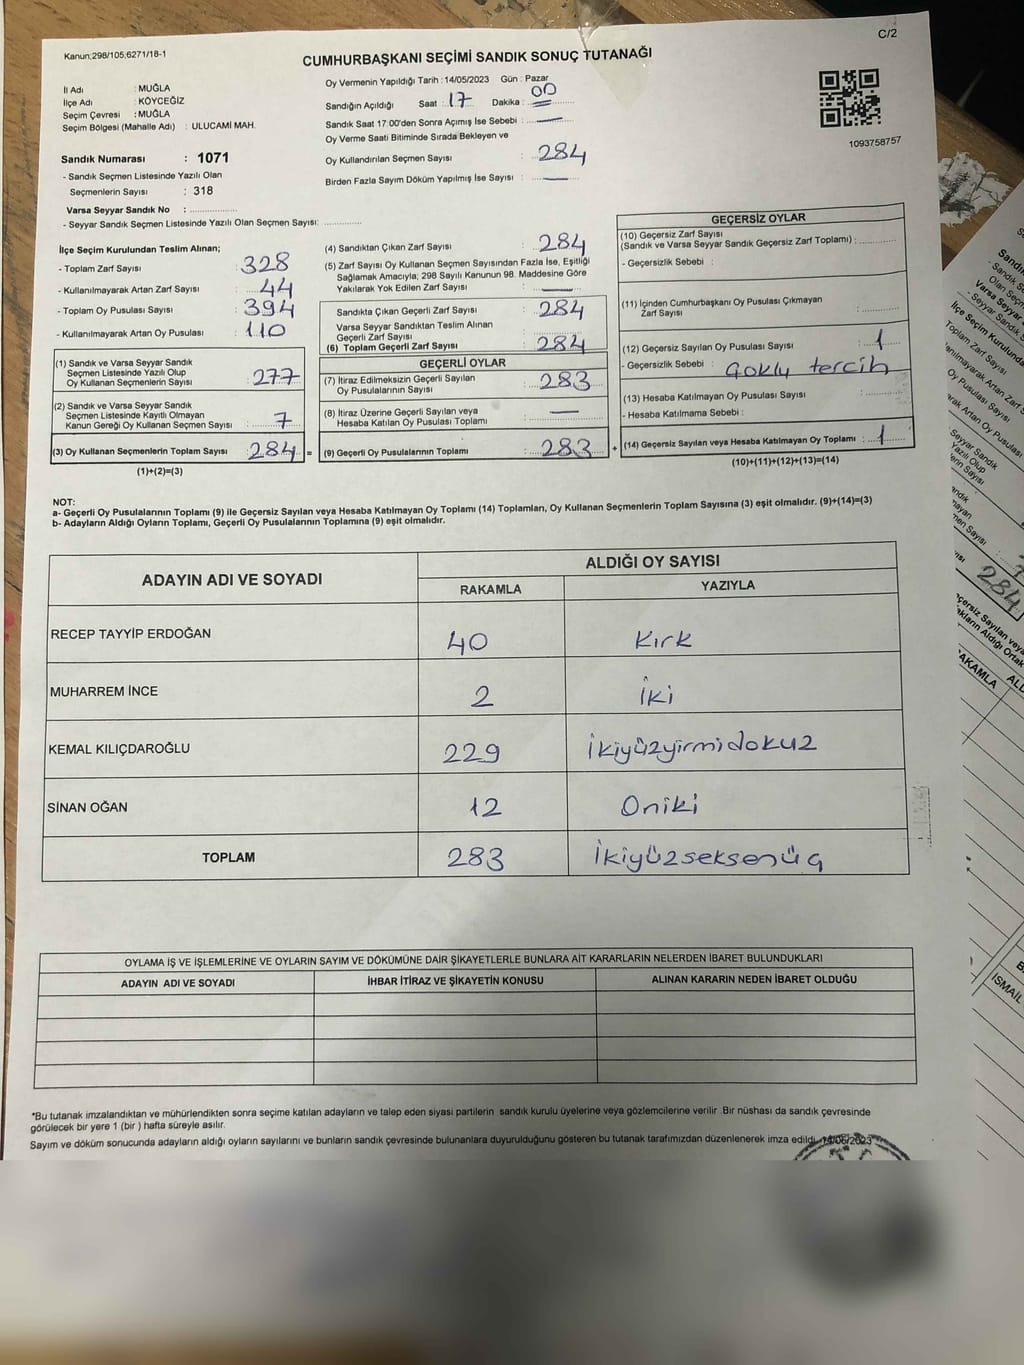 Kanun;298/105,6271/18-1
C/2
CUMHURBAŞKANI SEÇİMİ SANDIK SONUÇ TUTANAĞI
İl Adı : MUĞLA
İlçe Adı : KÖYCEĞİZ
Seçim Çevresi : MUĞLA
Seçim Bölgesi (Mahalle Adı) : ULUCAMİ MAH.
Sandık Numarası : 1071
- Sandık Seçmen Listesinde Yazılı Olan
Seçmenlerin Sayısı : 318
Varsa Seyyar Sandık No :
- Seyyar Sandık Seçmen Listesinde Yazılı Olan Seçmen Sayısı:
Oy Vermenin Yapıldığı Tarih : 14/05/2023 Gün : Pazar
Sandığın Açıldığı Saat : 17 Dakika : 00
Sandık Saat 17:00'den Sonra Açımış İse Sebebi : —
Oy Verme Saati Bitiminde Sırada Bekleyen ve
Oy Kullandırılan Seçmen Sayısı : 284
Birden Fazla Sayım Döküm Yapılmış İse Sayısı : —
1093758757
İlçe Seçim Kurulundan Teslim Alınan;
- Toplam Zarf Sayısı : 328
- Kullanılmayarak Artan Zarf Sayısı : 44
- Toplam Oy Pusulası Sayısı : 394
- Kullanılmayarak Artan Oy Pusulası : 110
(1) Sandık ve Varsa Seyyar Sandık
Seçmen Listesinde Yazılı Olup
Oy Kullanan Seçmenlerin Sayısı : 277
(2) Sandık ve Varsa Seyyar Sandık
Seçmen Listesinde Kayıtlı Olmayan
Kanun Gereği Oy Kullanan Seçmen Sayısı : 7
(3) Oy Kullanan Seçmenlerin Toplam Sayısı : 284 =
(1)+(2)=(3)
(4) Sandıktan Çıkan Zarf Sayısı : 284
(5) Zarf Sayısı Oy Kullanan Seçmen Sayısından Fazla İse, Eşitliği
Sağlamak Amacıyla; 298 Sayılı Kanunun 98. Maddesine Göre
Yakılarak Yok Edilen Zarf Sayısı : —
Sandıkta Çıkan Geçerli Zarf Sayısı : 284
Varsa Seyyar Sandıktan Teslim Alınan
Geçerli Zarf Sayısı :
(6) Toplam Geçerli Zarf Sayısı : 284
GEÇERLİ OYLAR
(7) İtiraz Edilmeksizin Geçerli Sayılan
Oy Pusulalarının Sayısı : 283
(8) İtiraz Üzerine Geçerli Sayılan veya
Hesaba Katılan Oy Pusulası Toplamı : —
(9) Geçerli Oy Pusulalarının Toplamı : 283 +
GEÇERSİZ OYLAR
(10) Geçersiz Zarf Sayısı
(Sandık ve Varsa Seyyar Sandık Geçersiz Zarf Toplamı) :
- Geçersizlik Sebebi :
(11) İçinden Cumhurbaşkanı Oy Pusulası Çıkmayan
Zarf Sayısı :
(12) Geçersiz Sayılan Oy Pusulası Sayısı : 1
- Geçersizlik Sebebi : Çoklu tercih
(13) Hesaba Katılmayan Oy Pusulası Sayısı :
- Hesaba Katılmama Sebebi :
(14) Geçersiz Sayılan veya Hesaba Katılmayan Oy Toplamı : 1
(10)+(11)+(12)+(13)=(14)
NOT:
a- Geçerli Oy Pusulalarının Toplamı (9) ile Geçersiz Sayılan veya Hesaba Katılmayan Oy Toplamı (14) Toplamları, Oy Kullanan Seçmenlerin Toplam Sayısına (3) eşit olmalıdır. (9)+(14)=(3)
b- Adayların Aldığı Oyların Toplamı, Geçerli Oy Pusulalarının Toplamına (9) eşit olmalıdır.
ADAYIN ADI VE SOYADI
ALDIĞI OY SAYISI
RAKAMLA YAZIYLA
RECEP TAYYİP ERDOĞAN 40 Kırk
MUHARREM İNCE 2 İki
KEMAL KILIÇDAROĞLU 229 İkiyüzyirmidokuz
SİNAN OĞAN 12 Oniki
TOPLAM 283 İkiyüzseksenüç
OYLAMA İŞ VE İŞLEMLERİNE VE OYLARIN SAYIM VE DÖKÜMÜNE DAİR ŞİKAYETLERLE BUNLARA AİT KARARLARIN NELERDEN İBARET BULUNDUKLARI
ADAYIN ADI VE SOYADI İHBAR İTİRAZ VE ŞİKAYETİN KONUSU ALINAN KARARIN NEDEN İBARET OLDUĞU
*Bu tutanak imzalandıktan ve mühürlendikten sonra seçime katılan adayların ve talep eden siyasi partilerin sandık kurulu üyelerine veya gözlemcilerine verilir. Bir nüshası da sandık çevresinde
görülecek bir yere 1 (bir ) hafta süreyle asılır.
Sayım ve döküm sonucunda adayların aldığı oyların sayılarını ve bunların sandık çevresinde bulunanlara duyurulduğunu gösteren bu tutanak tarafımızdan düzenlenerek imza edildi. 14/05/2023
284
RAKAMLA
İSMAİL